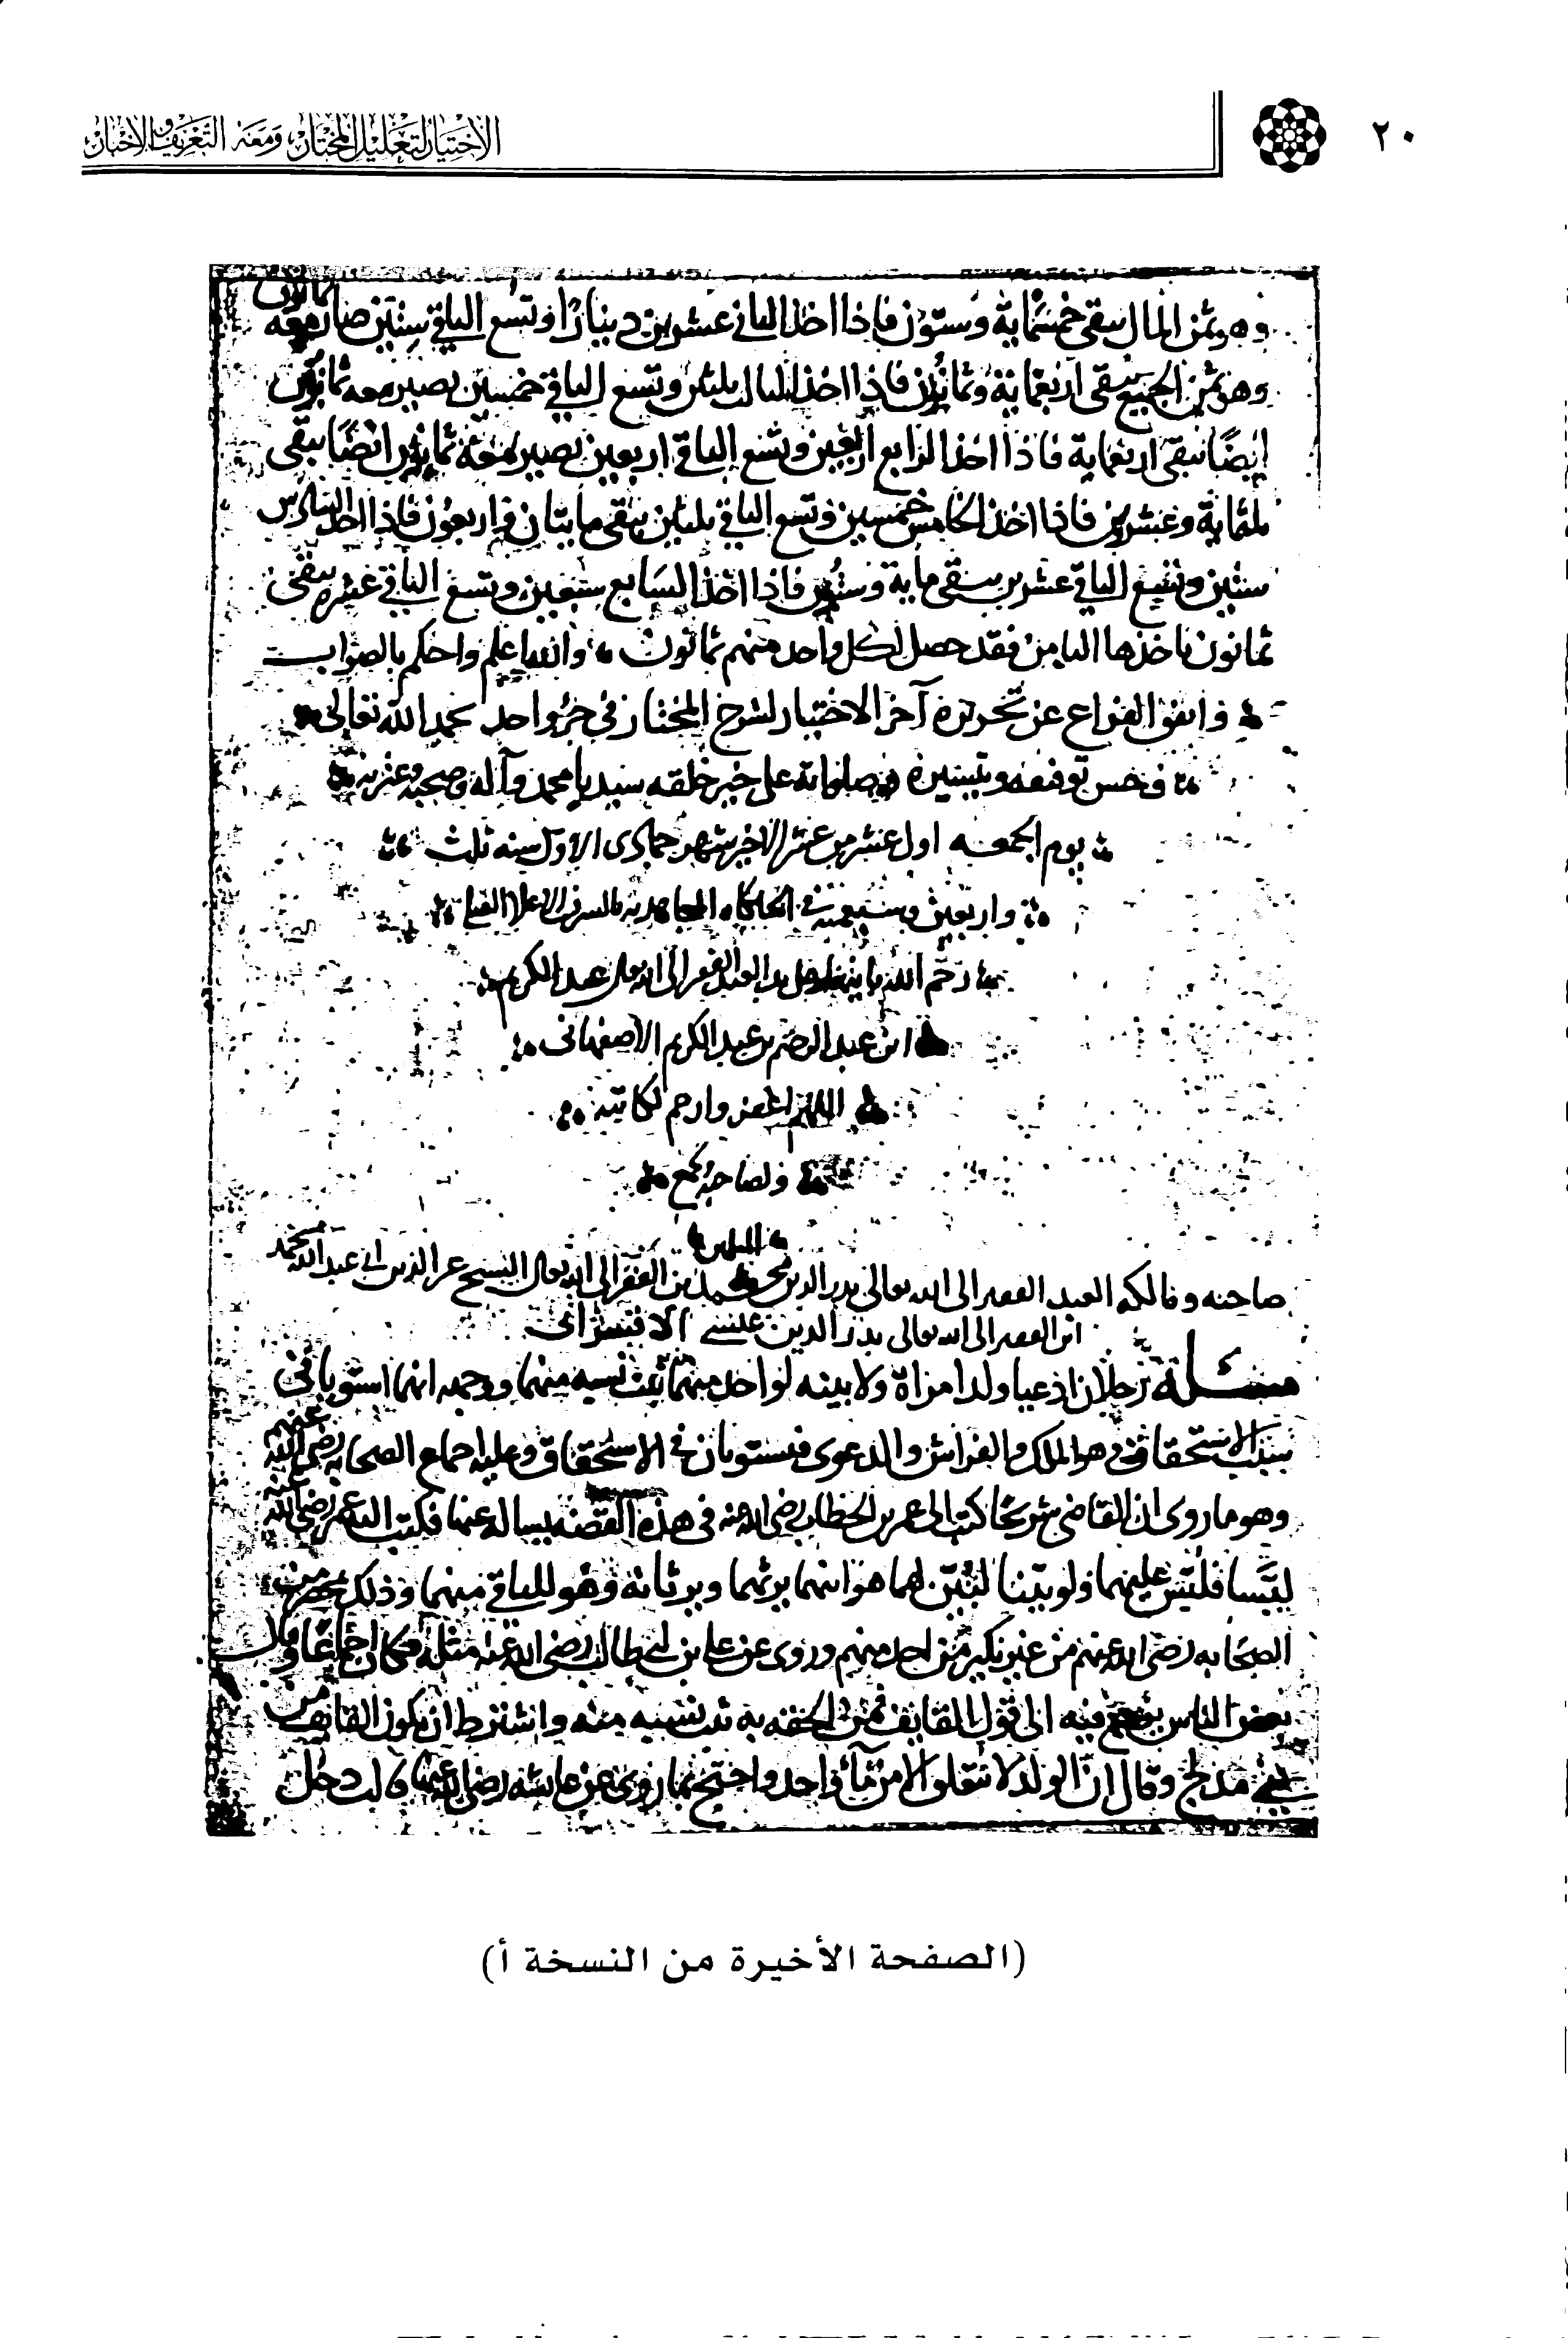 ٢٠
الاختيار لتعليل المختار ومعه التعريف والإخبار
وهو ثمن المال يبقى خمسمائة وستون فاذا اخذ الثاني عشرين دينارا وتسع الباقي ستين صار معه ثمانون
وهو ثمن الجميع يبقى اربعمائة وثمانون فاذا اخذ الثالث ثلثين وتسع الباقي خمسين يصير معه ثمانون
ايضا يبقى اربعماية فاذا اخذ الرابع اربعين وتسع الباقي اربعين يصير معه ثمانون ايضا يبقى
ثلثماية وعشرين فاذا اخذ الخامس خمسين وتسع الباقي ثلثين يبقى مايتان واربعون فاذا اخذ السادس
ستين وتسع الباقي عشرين يبقى ماية وستون فاذا اخذ السابع سبعين وتسع الباقي عشرة يبقى
ثمانون ياخذها الثامن فقد حصل لكل واحد منهم ثمانون والله اعلم واحكم بالصواب
وافق الفراغ عن تحريره آخر الاختيار لشرح المختار في جزء واحد بحمد الله تعالى
وحسن توفيقه وتيسيره وصلواته على خير خلقه سيدنا محمد وآله وصحبه وعترته
يوم الجمعه اول عشر من عشر الاخير شهر جمادى الاول سنه ثلث
واربعين وسبعمئة في الخانكاه المجاهدية بالشرف الاعلا القبلي
رحم الله بانيها على يد العبد الفقير الى الله تعالى عبد الكريم
ابن عبد الرحيم بن عبد الكريم الاصفهانى
اللهم اغفر وارحم لكاتبه
ولصاحبه
صاحبه ومالكه العبد الفقير الى الله تعالى بدر الدين محمد بن الفقير الى الله تعالى الشيخ عز الدين ابي عبد الله محمد
ابن الفقير الى الله تعالى بدر الدين عيسى الاقسرائى
مسئلة رجلان ادعيا ولد امراة ولا بينه لواحد منهما يثبت نسبه منهما ووجهه انهما استويا في
سبب الاستحقاق وهو الملك والفراش والدعوى فيستويان في الاستحقاق وعليه اجماع الصحابه رضي الله عنهم
وهو ما روى ان القاضى شريحا كتب الى عمر بن الخطاب رضى الله عنه فى هذه القصه يساله عنها فكتب اليه عمر رضي الله عنه
لبسا فلبس عليهما ولو بينا لبين لهما هو ابنهما يرثهما ويرثانه وهو للباقي منهما وذلك بمحضر من
الصحابه رضى الله عنهم من غير نكير من احد منهم وروى عن على بن ابي طالب رضى الله عنه مثله فكان اجماعا وقال
بعض الناس يرجع فيه الى قول القايف فمن الحقه به ثبت نسبه منه واشترط ان يكون القايف من
بني مدلج وقال ان الولد لا يتعلق الا من ماء واحد واحتج بما روى عن عايشه رضى الله عنها قالت دخل
(الصفحة الأخيرة من النسخة أ)